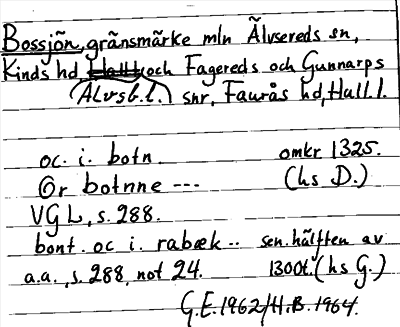 Bossjön, gränsmärke mln Älvsereds sn,
Kinds hd och Fagereds och Gunnarps
(Älvsb.l.) snr, Faurås hd, Hall.l.
oc. i. botn omkr 1325.
Or botnne --- (hs D.)
VGL, s. 288.
bont. oc i. rabæk.. sen. hälften av
a.a., s. 288, not 24. 1300t. (hs G.)
G.E. 1962/H.B. 1964.